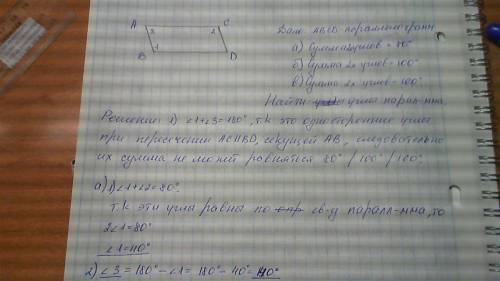 A C
3 2
1
B D
Дано: ABCD параллелограмм
а) сумма 2х углов = 80°
б) сумма 2х углов = 100°
в) сумма 2х углов = 160°
Найти углы парал-мма
Решение: 1) ∠1+∠3=180°, т.к это односторонние углы
при пересечении AC||BD, секущей AB, следовательно
их сумма не может равняться 80° / 100° / 160°.
а) 1) ∠1+∠2=80°.
т.к эти углы равны по св-ву паралл-мма, то
2∠1=80°
∠1=40°
2) ∠3 = 180° - ∠1 = 180° - 40° = 140°